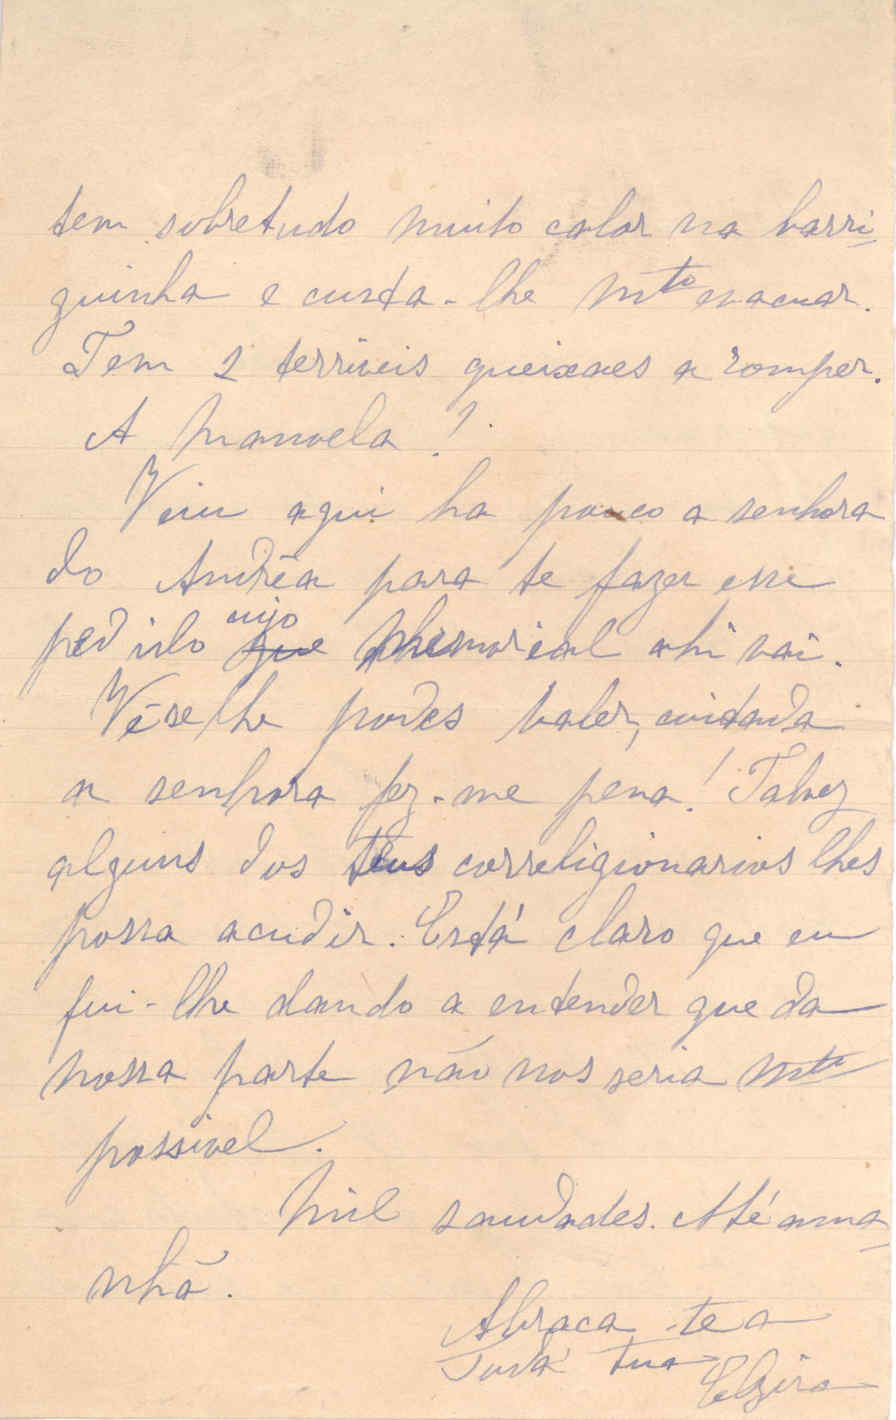 tem sobretudo muito calor na barri-
guinha e custa-lhe mto evacuar.
Tem 2 terriveis queixaes a romper.
A Manoela!
Veiu aqui ha pouco a senhora
do Andréa para te fazer esse
pedido cujo que memorial ahi vai.
Vê se lhe podes valer, cuidada
a senhora fez-me pena! Talvez
alguns dos teus correligionarios lhes
possa acudir. Está claro que eu
fui-lhe dando a entender que da
nossa parte não nos seria mto
possivel.
Mil saudades. Até ama-
nhã.
Abraca-te a
Toda tua
Elzira